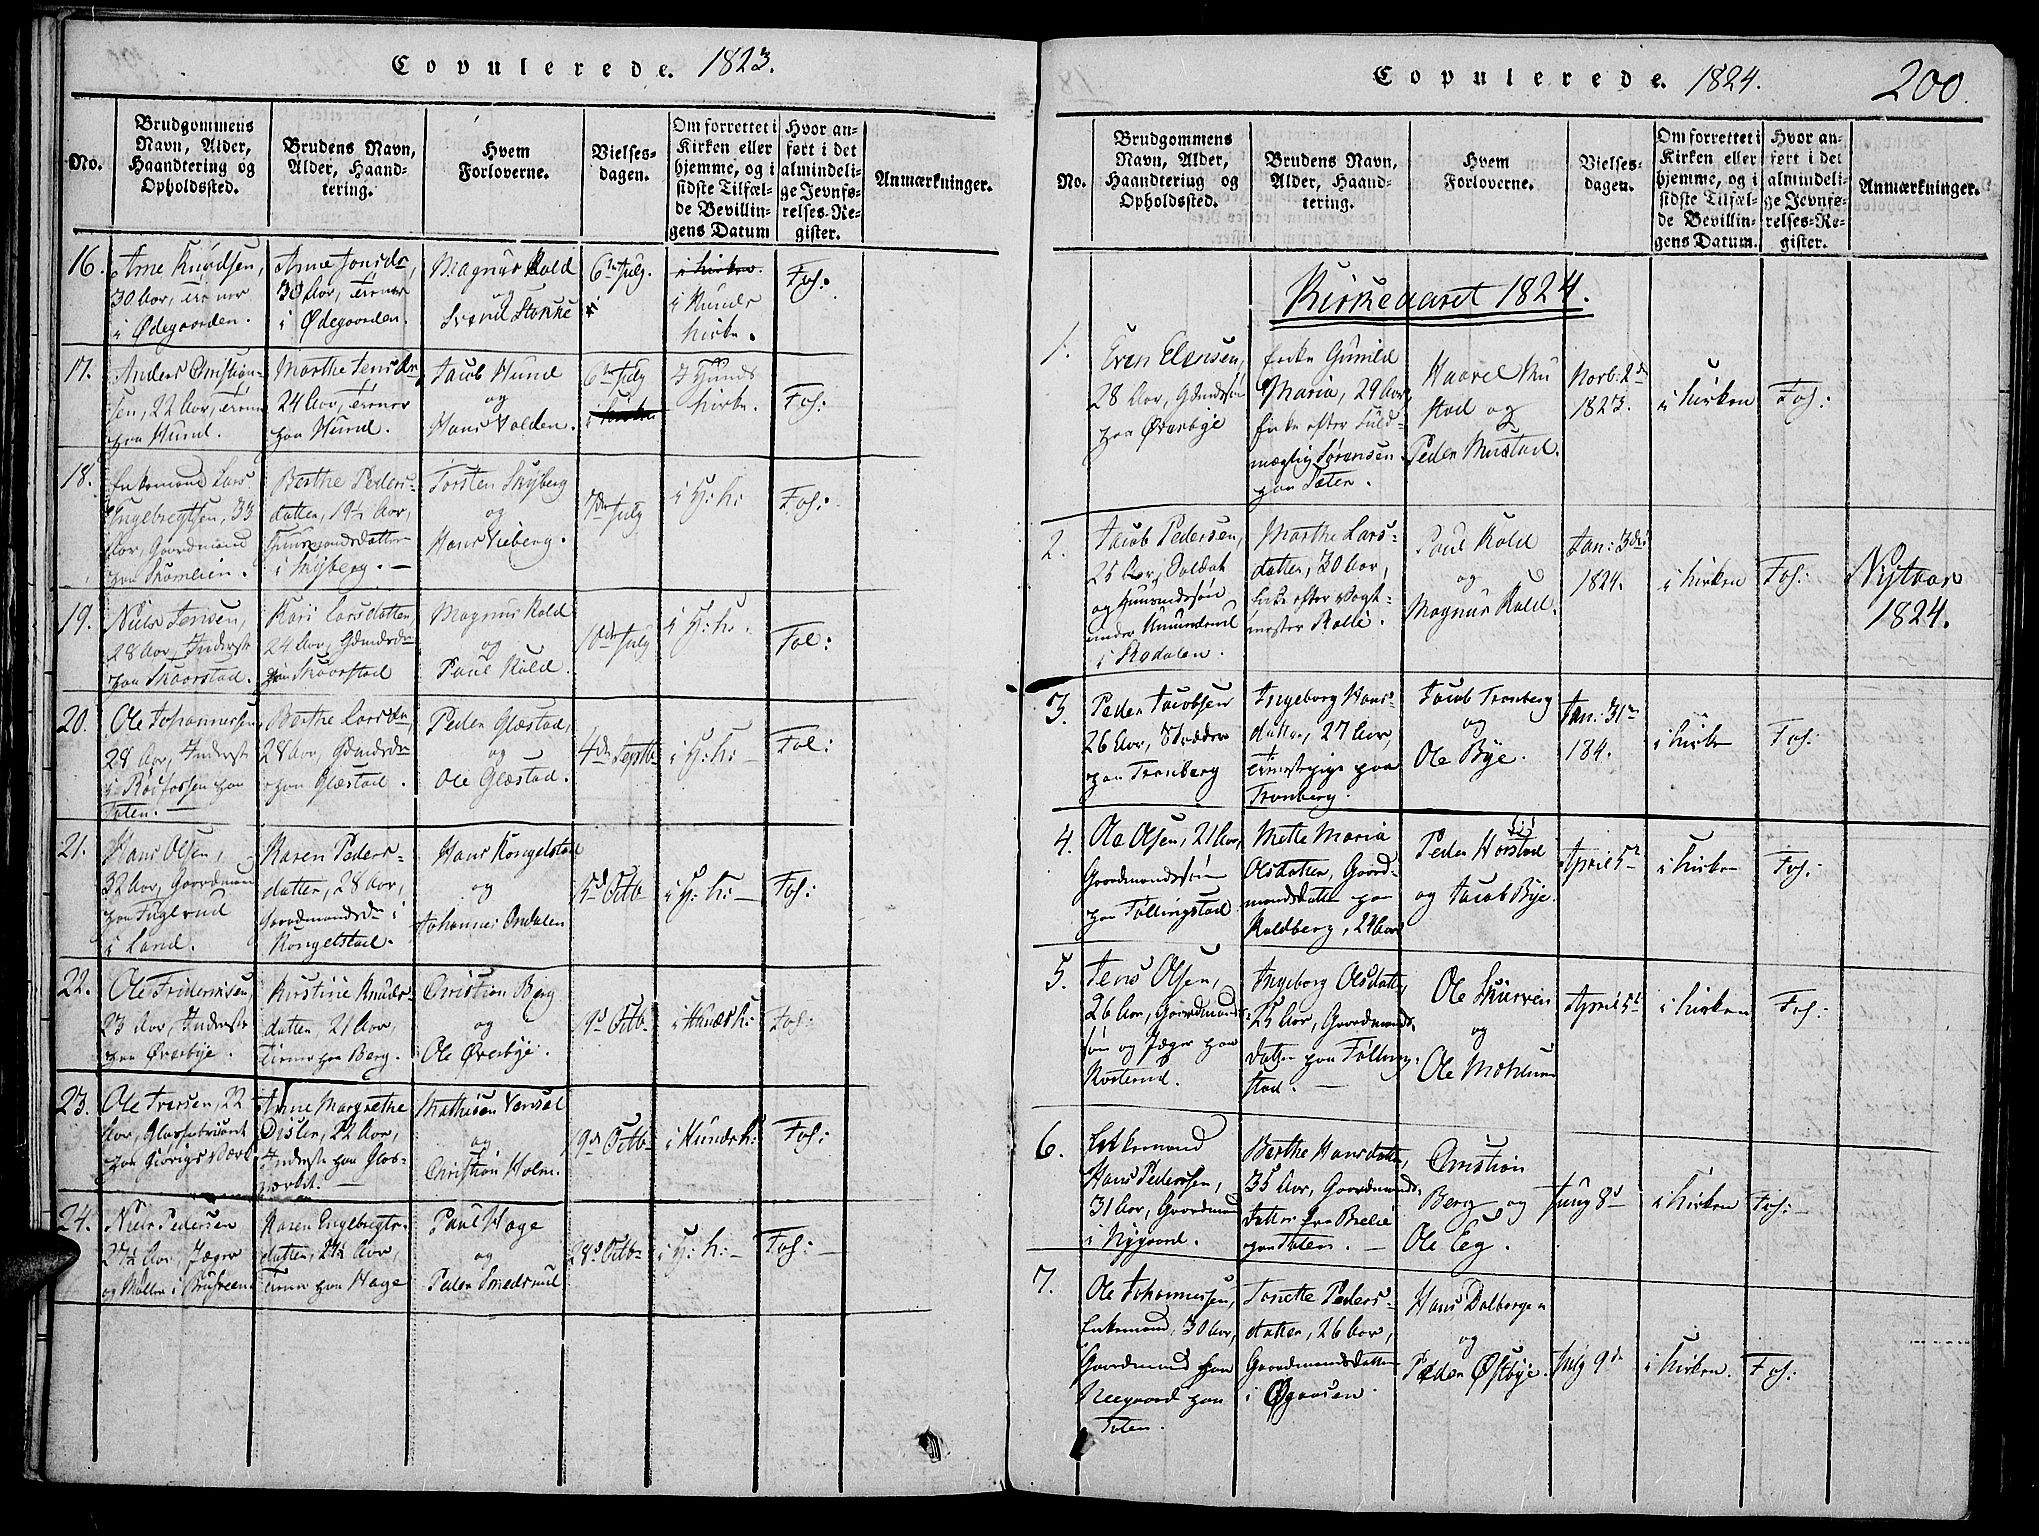 Copulerede. 1823.
No.
Brudgommens
Navn, Alder,
Haandtering og
Opholdssted.
Brudens Navn,
Alder, Haand-
tering.
Hvem
Forloverne.
Vielses-
dagen.
Om forrettet i
Kirken eller
hjemme, og i
sidste Tilfæl-
de Bevillin-
gens Datum
Hvor an-
ført i det
almindeli-
ge Jevnfø-
relses-Re-
gister.
Anmærkninger.
16.
Arne Knudsen,
30 Aar,
i Ødegaarden.
Anne Jonsdr,
30 Aar,
i Ødegaarden.
Magnus Kald
og
Svend Stokke
6te July.
i Hunds
Kirke.
Fol:
17.
Anders Christian-
sen, 22 Aar,
paa Hund.
Marthe Jensdr,
24 Aar,
paa Hund.
Jacob Hund
og
Hans Halden.
6te July
i Hunds
Kirke.
Fol:
18.
Enkemand Lars
Ingebregtsen, 33
Aar, Gaardmand
paa
Berthe Peders-
datter, 19½ Aar,
Huusmandsdatter
i Skyberg.
Torsten Skyberg
og
Hans Vieberg.
7de July
i H: K:
Fol:
19.
Niels Jensen,
28 Aar, Inderste
paa Skaarstad.
Kari Larsdatter,
24 Aar, Gdmdsdr
paa Skaarstad
Magnus Kald
og
Paul Kald.
10de July
i H: K:
Fol:
20.
Ole Johannessen,
28 Aar, Inderste
i paa
Toten.
Berthe Larsdr,
28 Aar, Gdmdsdr
paa Glæstad.
Peder Glæstad,
og
Ole Glæstad.
4de Septb
i H: K:
Fol:
21.
Hans Olsen,
32 Aar, Gaardmand
paa Fuglerud
i Land.
Karen Peders-
datter, 28 Aar,
Gaardmandsdr i
Kongelstad.
Hans Kongelstad
og
Johannes Omdalen
5d Octb
i H: K:
Fol:
22.
Ole Frideriksen,
23 Aar, Inderste
paa Øverbye.
Kirstine Knuds-
datter 21 Aar,
paa Berg.
Christian Berg
og
Ole Øverbye.
9d Octb
i Hunds K:
Fol:
23.
Ole Iversen, 22
Aar,
paa Giøvigs Værk
Anne Margrethe
22 Aar,
Inderste paa Glas-
værket.
Mathisen
og
Christian Holm.
19de Octb
i Hunds K:
Fol:
24.
Niels Pedersen
27½ Aar, Jæger
og Møller i
Karen Engebregts-
datter, 24½ Aar,
paa Hage
Paul Hage
og
Peder Smedsrud
28d Octb
i H: K:
Fol:
Copulerede. 1824.
200.
No.
Brudgommens
Navn, Alder,
Haandtering og
Opholdssted.
Brudens Navn,
Alder, Haand-
tering.
Hvem
Forloverne.
Vielses-
dagen.
Om forrettet i
Kirken eller
hjemme, og i
sidste Tilfæl-
de Bevillin-
gens Datum.
Hvor an-
ført i det
almindeli-
ge Jevnfø-
relses-Re-
gister.
Anmærkninger.
Kirkeaaret 1824.
1.
Even Evensen,
28 Aar, Gdmdssøn
paa Øverbye
Enke Gunild
Maria, 29 Aar,
Enke efter Fuld-
mægtig Sørensen
paa Sæter.
Haavel Mu
stad og
Peder Mustad.
Novb: 2de
1823.
i Kirken
Fol:
2.
Jacob Pedersen,
25 Aar, Soldat
og Huusmandssøn
under Amundrud
i
Marthe Lars-
datter, 30 Aar,
Enke efter Vagt-
mester Kalle.
Paul Kald
og
Magnus Kald.
Jan: 3de
1824.
i Kirken
Fol:
Nytaar
1824.
3.
Peder Jacobsen
26 Aar, Skrædder
paa Tronberg
Ingeborg Hans-
datter, 27 Aar,
Tienestepige paa
Tronberg.
Jacob Tronberg
og
Ole Bye.
Jan: 31te
184.
i Kirken
Fol:
4.
Ole Olsen, 21 Aar,
Gaardmandssøn
paa Føllingstad.
Mette Maria
Olsdatter, Gaard-
mandsdatter paa
Kaldberg, 24 Aar
Peder Horstad
og Jacob Bye.
April 5te
i Kirken
Fol:
5.
Jens Olsen,
26 Aar, Gaardmands-
søn og Jæger paa
Kosterud.
Ingeborg Olsdatter,
25 Aar, Gaardmands-
datter paa Følling-
stad.
Ole Skurven
og
Ole Mæhlum
April 5te
i Kirken
Fol:
6.
Enkemand
Hans Pedersen,
31 Aar, Gaardmand
i Nygaard.
Berthe Hansdatter,
35 Aar, Gaardmands-
datter fra
paa Toten.
Christian
Berg og
Ole Eeg.
Juny 8d
i Kirken
Fol:
7.
Ole Johannessen,
Enkemand, 30 Aar,
Gaardmand paa
Neegaard paa
Toten.
Tonette Peders-
datter, 26 Aar,
Gaardmandsdatter
i Øgaarden.
Hans Dalborgen
og
Peder Østbye.
July 9de
i Kirken.
Fol: